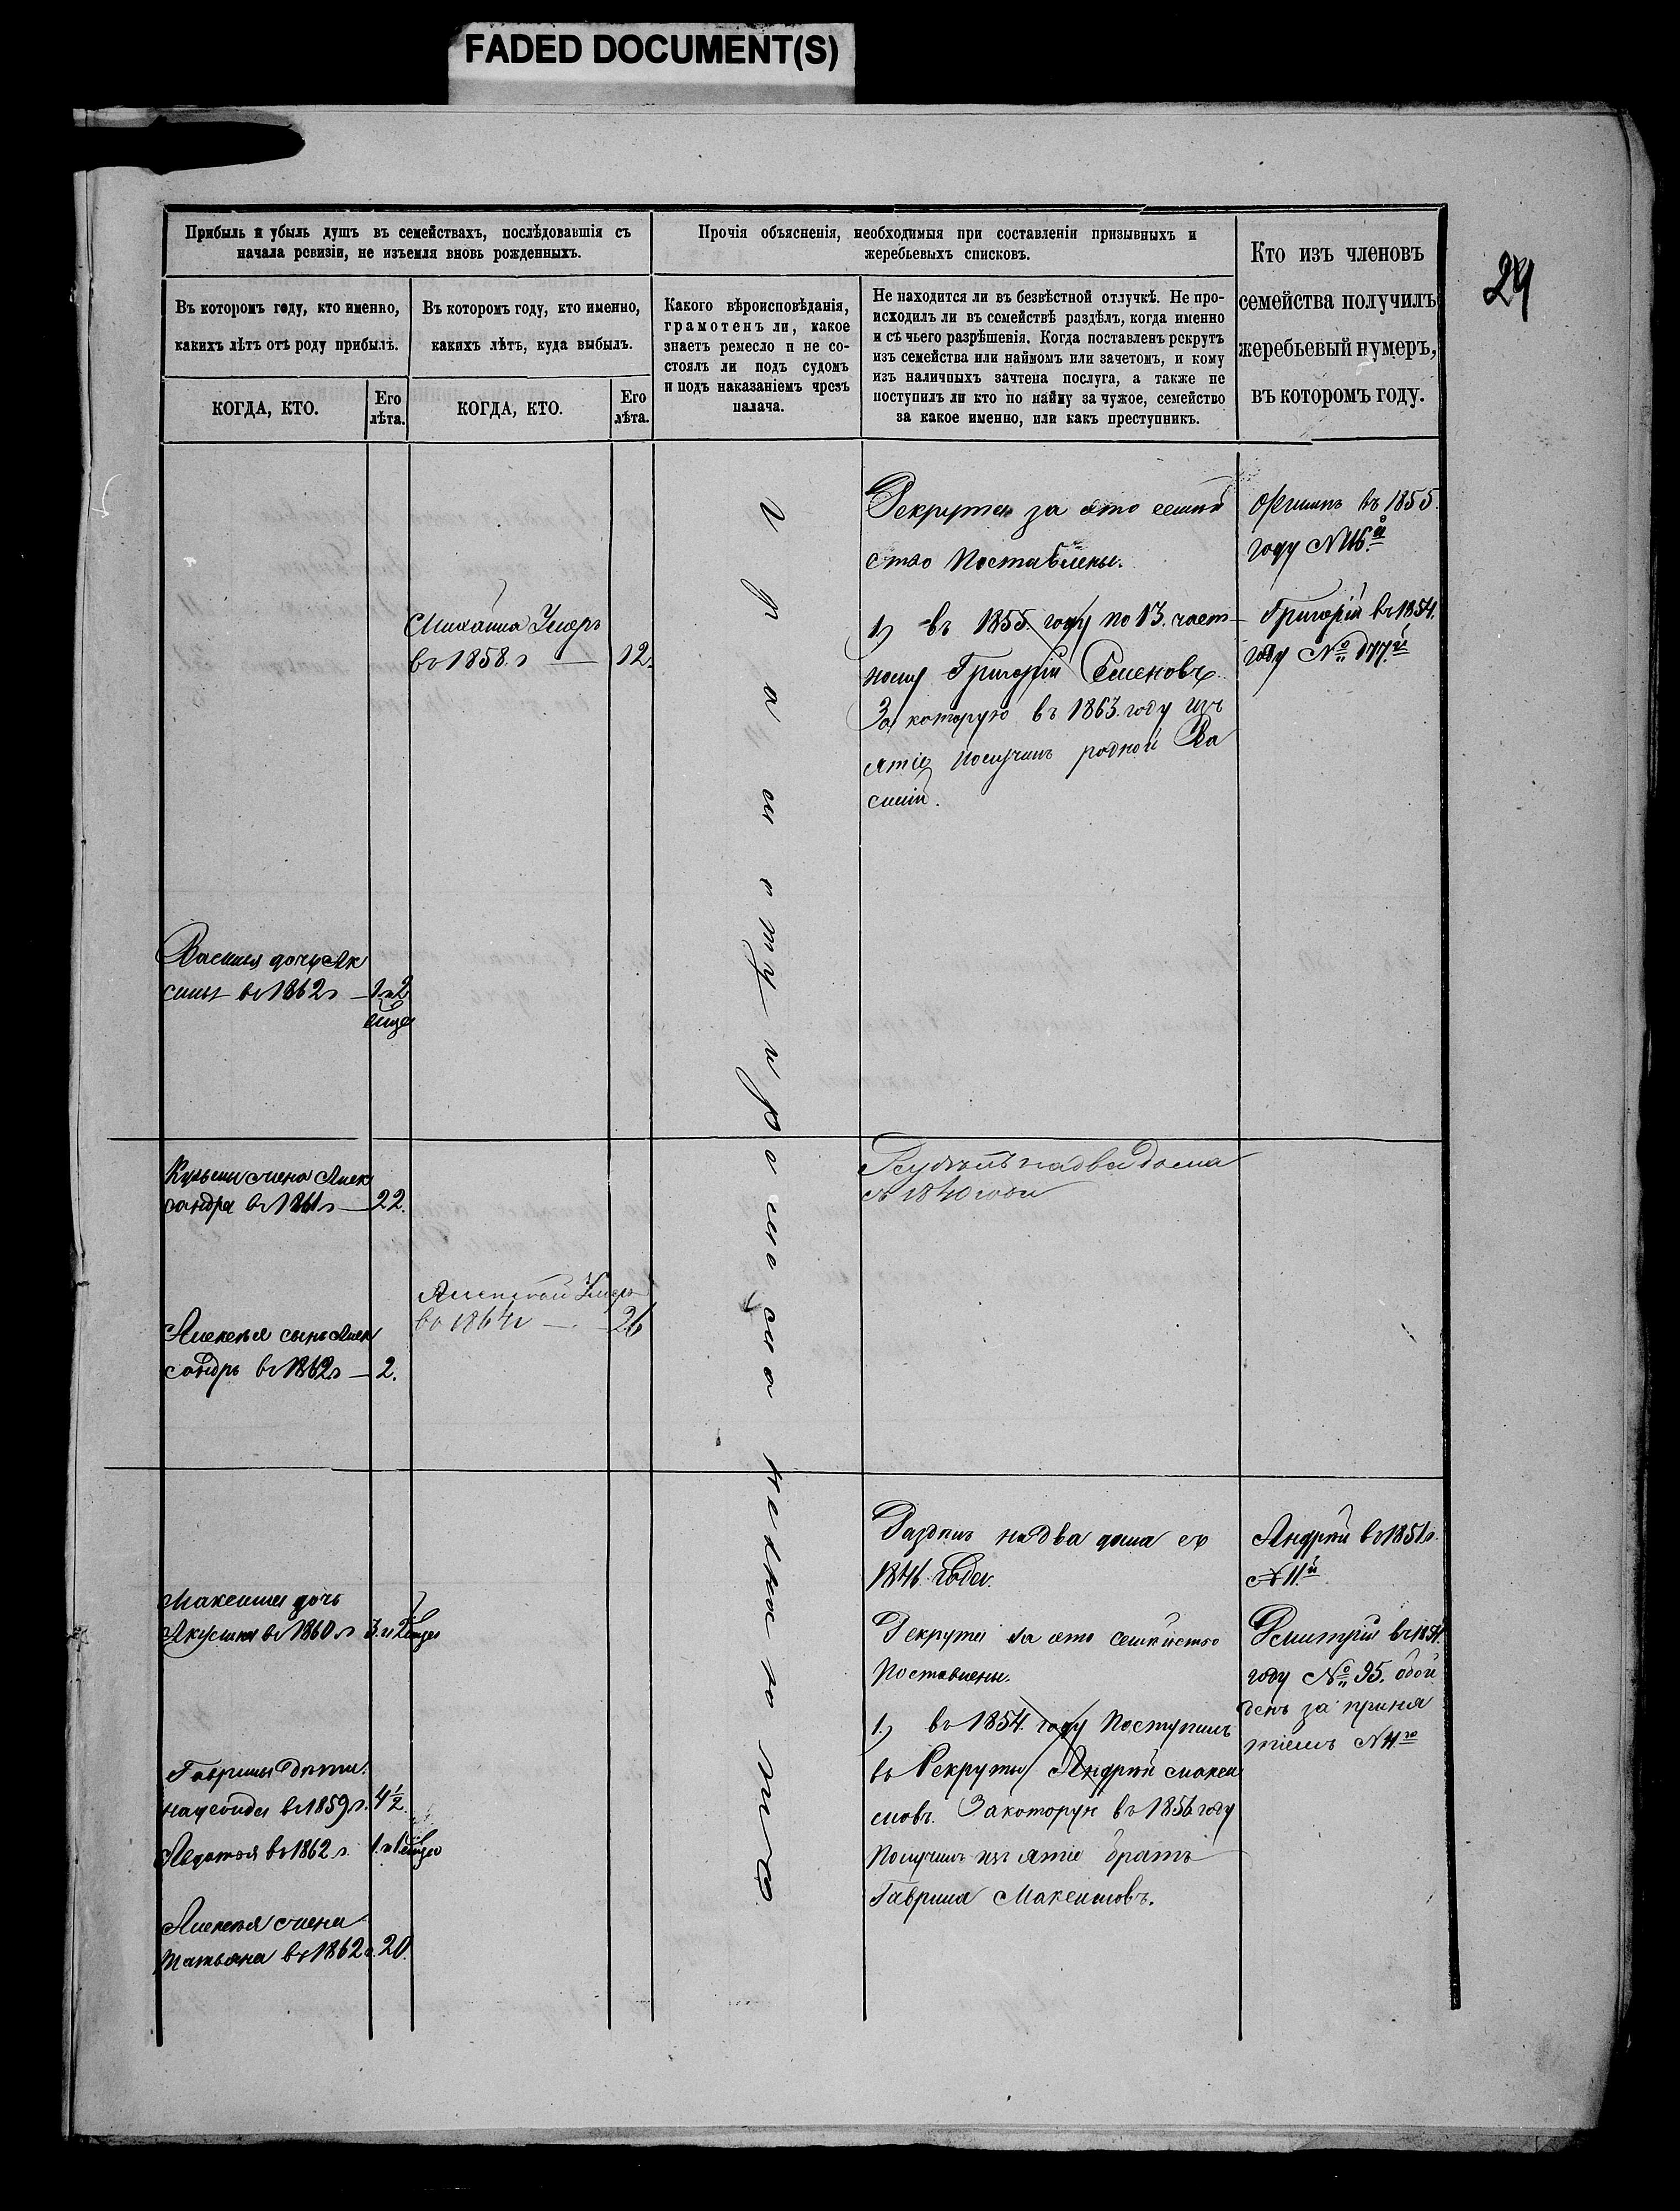 FADED DOCUMENT(S)
29
Прибыль и убыль душъ въ семействахъ, послѣдовавшія съ
начала ревизіи, не изъемля вновь рожденныхъ.
Прочія объясненія, необходимыя при составленіи призывныхъ и
жеребьевыхъ списковъ.
Кто изъ членовъ
семейства получилъ
жеребьевый нумеръ,
въ которомъ году.
Въ которомъ году, кто именно,
какихъ лѣтъ отъ роду прибылъ.
Въ которомъ году, кто именно,
какихъ лѣтъ, куда выбылъ.
Какого вѣроисповѣданія,
грамотенъ ли, какое
знаетъ ремесло и не со-
стоялъ ли подъ судомъ
и подъ наказаніемъ чрезъ
палача.
Не находится ли въ безвѣстной отлучкѣ. Не про-
исходилъ ли въ семействѣ раздѣлъ, когда именно
и съ чьего разрѣшенія. Когда поставленъ рекрутъ
изъ семейства или наймомъ или зачетомъ, и кому
изъ наличныхъ зачтена послуга, а также не
поступилъ ли кто по найму за чужое, семейство
за какое именно, или какъ преступникъ.
КОГДА, КТО.
Его
лѣта.
КОГДА, КТО.
Его
лѣта.
Рекрута за это семей
ство Поставлены.
1) въ 1855. году по 13. част
ному Григорій Семеновъ.
За которую въ 1863. году изъ
ятіе получилъ родной Ва
силій.
въ 1855
году №
Григорій въ 1854.
году № 177.й
Михайла Умеръ
въ 1858. г — 12.
Василья дочь Ак
синья въ 1862 г — 1 и 2
Кузьмы жена Алек
сандра въ 1861 г — 22.
на два дома
съ 1840 года
Умеръ
въ 1864 г — 26
Алексѣя сынъ Алек
сандръ въ 1862 г — 2.
Раздѣлъ на два дома съ
1846 года.
Рекрута за это семейство
Поставлены.
1.) въ 1854. году Поступилъ
въ Рекруты Андрей Макси
мовъ. За которую въ 1856 году
Получилъ изъ ятіе братъ
Гаврила Максимовъ.
Андрей въ 1851 г.
№ 11.й
Дмитрій въ 1854
году № 95. обой
денъ за приня
тіемъ №
Максима дочь
Акулина въ 1860 г 3. и 2
Гаврилы дѣти.
въ 1859 г. 4 1/2
Авдотья въ 1862 г. 1. и 1
Алексѣя жена
Татьяна въ 1862 г. 20.